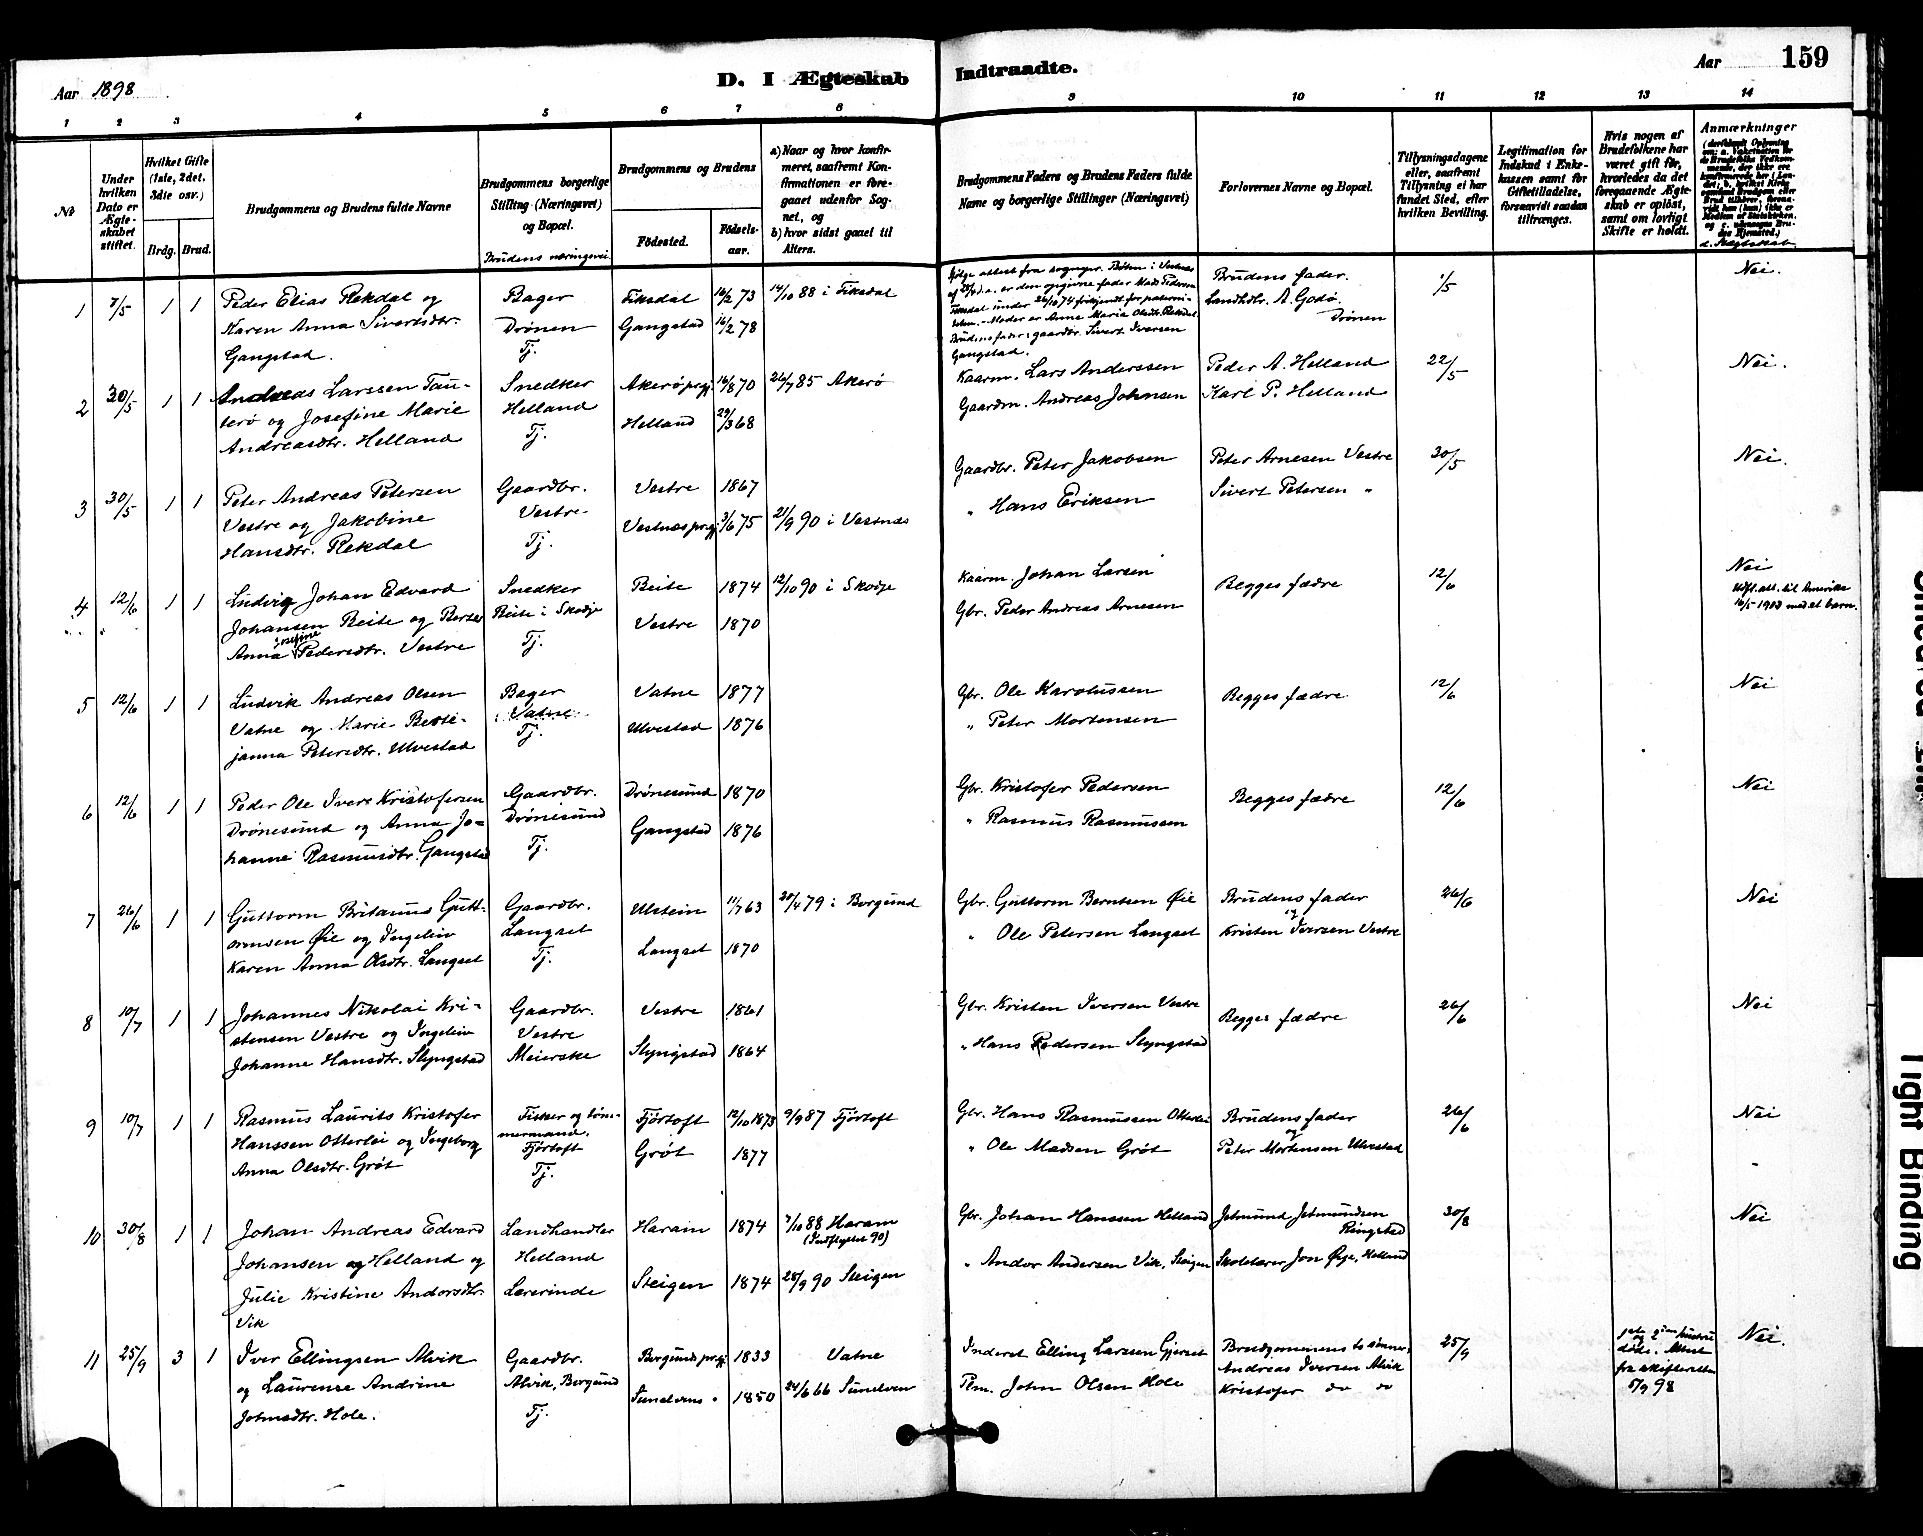 Aar 1898
D. I Ægteskab Indtraadte.
Aar 159
1 2 3 4 5 6 7 8 9 10 11 12 13 14
No
Under hvilken Dato er Ægteskabet stiftet.
Hvilket Gifte (1ste, 2det, 3die osv.)
Brdg. Brud.
Brudgommens og Brudens fulde Navne
Brudgommens borgerlige Stilling (Næringsvei) og Bopæl.
Brudens næringsvei
Brudgommens og Brudens
Födested. Födsels-aar.
a) Naar og hvor konfirmeret, saafremt Konfirmationen er foregaaet udenfor Sognet, og
b) hvor sidst gaaet til Alters.
Brudgommens Faders og Brudens Faders fulde Navne og borgerlige Stillinger (Næringsvei)
Forlovernes Navne og Bopæl.
Tillysningsdagene eller, saafremt Tillysning ei har fundet Sted, efter hvilken Bevilling.
Legitimation for Indskud i Enkekassen samt for Giftetilladelse, forsaavidt saadan tiltrænges.
Hvis nogen af Brudefolkene har været gift før, hvorledes da det foregaaende Ægteskab er opløst, samt om lovligt Skifte er holdt.
Anmærkninger
d. Slægtskab.
1 7/5 1 1 Peder Elias Rekdal og
Karen Anna Sivertsdtr.
Gangstad.
Bager
Drønen
Tj.
Fiksdal 16/2 73
Gangstad 16/2 78
14/10 88 i Fiksdal
Ifølge attest fra sogneprest
er den opgivne fader Mads Pedersen
Fiksdal under 26/10 74 frikjendt for paterni-
teten. - Moder er Anne Maria Olsdtr. Rekdal
Brudens fader: gaardbr. Sivert Iversen
Gangstad.
Brudens fader.
Landhdlr. A. Godø.
Drønen
1/5
Nei.
2 30/5 1 1 Andreas Larssen Tau-
terø og Josefine Marie
Andreasdtr. Helland
Snedker
Helland
Tj.
Akerø prgj. 16/8 70
Helland 29/3 68
26/7 85 Akerø
Kaarm. Lars Anderssen
Gaardm. Andreas Johnsen
Peder A. Helland
Karl P. Helland
22/5
Nei.
3 30/5 1 1 Peter Andreas Petersen
Vestre og Jakobine
Hansdtr. Rekdal
Gaardbr.
Vestre
Tj.
Vestre 1867
Vestnes prgj. 3/6 75
21/9 90 i Vestnes
Gaardbr. Peter Jakobsen
" Hans Eriksen
Peter Arnesen Vestre
Sivert Petersen "
30/5
Nei.
4 12/6 1 1 Ludvig Johan Edvard
Johansen Beite og Berte
Anna Josefine Pedersdtr. Vestre
Snedker
Beite i Skodje
Tj.
Beite 1874
Vestre 1870
12/10 90 i Skodje
Kaarm Johan Larsen
Gbr. Peder Andreas Arnesen
Begges fædre
12/6
Nei
Udfl. att. til Amerika
16/5 1903 med et barn.
5 12/6 1 1 Ludvik Andreas Olsen
Vatne og Marie Berte-
janna Petersdtr. Ulvestad
Bager
Vatne
Tj.
Vatne 1877
Ulvestad 1876
Gbr. Ole Karolussen
" Peter Mortensen
Begges fædre
12/6
Nei
6 12/6 1 1 Peder Ole Iver Kristofersen
Drønesund og Anna Jo-
hanne Rasmusdtr. Gangstad
Gaardbr.
Drønesund
Tj.
Drønesund 1870
Gangstad 1876
Gbr. Kristofer Pedersen
" Rasmus Rasmussen
Begges fædre
12/6
Nei
7 26/6 1 1 Guttorm Britanus Gutt-
ormsen Øie og Ingeliv
Karen Anna Olsdtr. Langset
Gaardbr.
Langset
Tj.
Ulstein 11/7 63
Langset 1870
20/4 79 i Borgund
Gbr. Guttorm Berntsen Øie
" Ole Petersen Langset
Brudens fader
og
Kristen Iversen Vestre
26/6
Nei
8 10/7 1 1 Johannes Nikolai Kri-
stensen Vestre og Ingeliv
Johanne Hansdtr. Slyngstad
Gaardbr.
Vestre
Meierske
Vestre 1861
Slyngstad 1864
Gbr. Kristen Iversen Vestre
" Hans Pedersen Slyngstad
Begges fædre
26/6
Nei
9 10/7 1 1 Rasmus Laurits Kristofer
Hanssen Otterlei og Ingeborg
Anna Olsdtr. Grøt
Fisker og tøm-
mermand.
Fjørtoft
Tj.
Fjørtoft 12/10 1873
Grøt 1877
9/9 87 Fjørtoft
Gbr. Hans Rasmussen Otterlei
" Ole Madsen Grøt
Brudens fader
og
Peter Mortensen Ulvestad
26/6
Nei
10 30/8 1 1 Johan Andreas Edvard
Johansen og Helland og
Julie Kristine Andorsdtr.
Vik
Landhandler
Helland
Lærerinde
Haram 1874
Steigen 1874
7/10 88 Haram
(Indflyttet 90)
28/9 90 Steigen
Gbr. Johan Hanssen Helland
" Andor Andersen Vik, Steigen
Jetmund Jetmundsen
Ringstad
Skolelærer Jon Øye, Helland
30/8
Nei
11 25/9 3 1 Iver Ellingsen Alvik
og Laurense Andrine
Johnsdtr. Hole.
Gaardbr.
Alvik, Borgund
Tj.
Borgunds prgj. 1833
Sunelvens " 1850
Vatne
24/6 66 Sunelven
Inderst Elling Larssen Gjerset
Plm. John Olsen Hole
Brudgommens to sønner,
Andreas Iversen Alvik
Kristofer do do
25/9
1ste og 2den hustru
døde. Attest
fra skifteretten
5/9 98
Nei.
Tight Binding